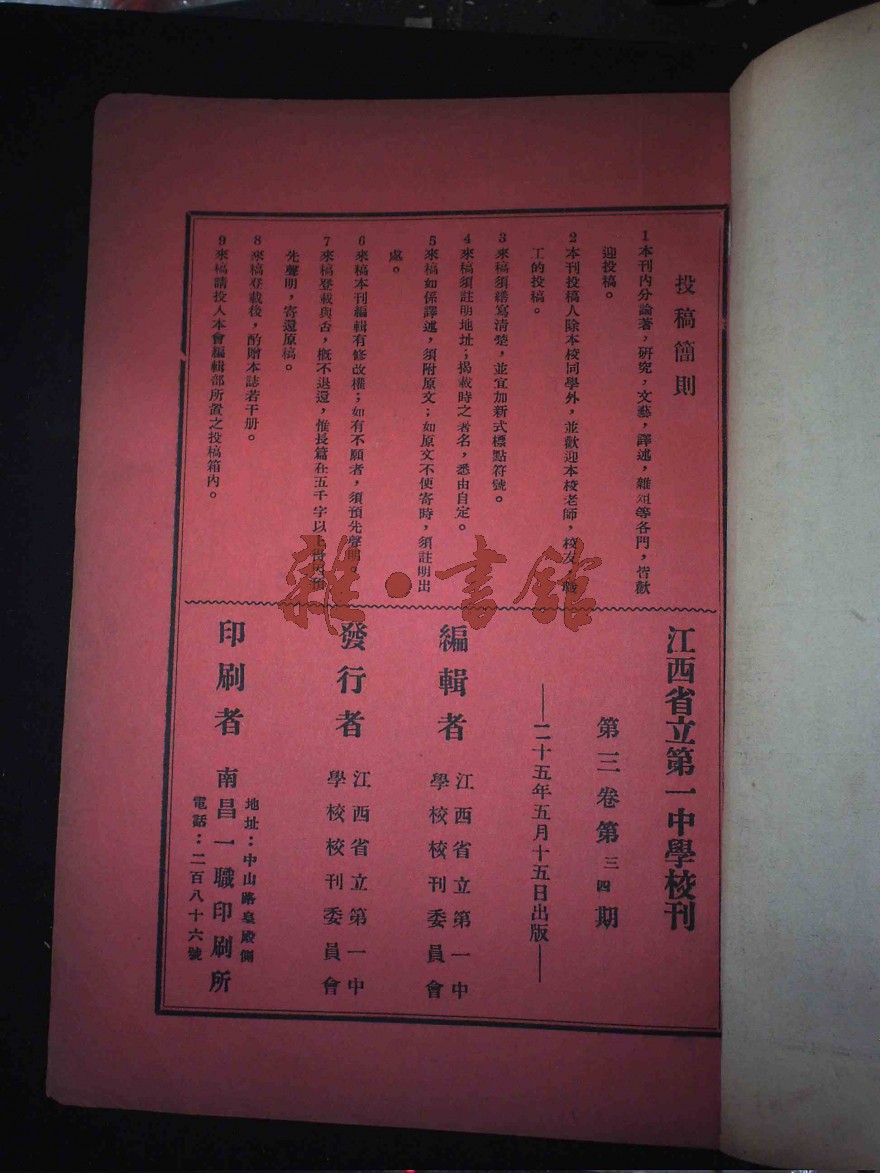 投稿簡則
1本刊內分論著，研究，文藝，譯述，雜俎等各門，皆歡
迎投稿。
2本刊投稿人除本校同學外，並歡迎本校老師，校友，職
工的投稿。
3來稿須繕寫清楚，並宜加新式標點符號。
4來稿須註明地址；揭載時之署名，悉由自定。
5來稿如係譯述，須附原文；如原文不便寄時，須註明出
處。
6來稿本刊編輯有修改權；如有不願者，須預先聲明。
7來稿登載與否，概不退還，惟長篇在五千字以上得因預
先聲明，寄還原稿。
8來稿登載後，酌贈本誌若干册。
9來稿請投入本會編輯部所置之投稿箱內。
雜·書館
江西省立第一中學校刊
第三卷第三四期
——二十五年五月十五日出版——
編輯者
江西省立第一中
學校校刊委員會
發行者
江西省立第一中
學校校刊委員會
印刷者
地址：中山路皇殿側
南昌一職印刷所
電話：二百八十六號